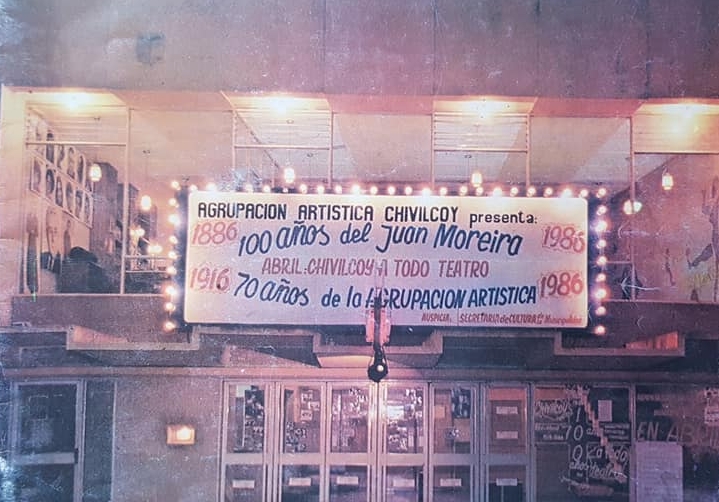 AGRUPACION ARTISTICA CHIVILCOY presenta:
1886 100 años del Juan Moreira 1986
ABRIL: CHIVILCOY A TODO TEATRO
1916 70 años de la AGRUPACION ARTISTICA 1986
AUSPICIA: SECRETARIA de CULTURA de la Municipalidad
EN AB